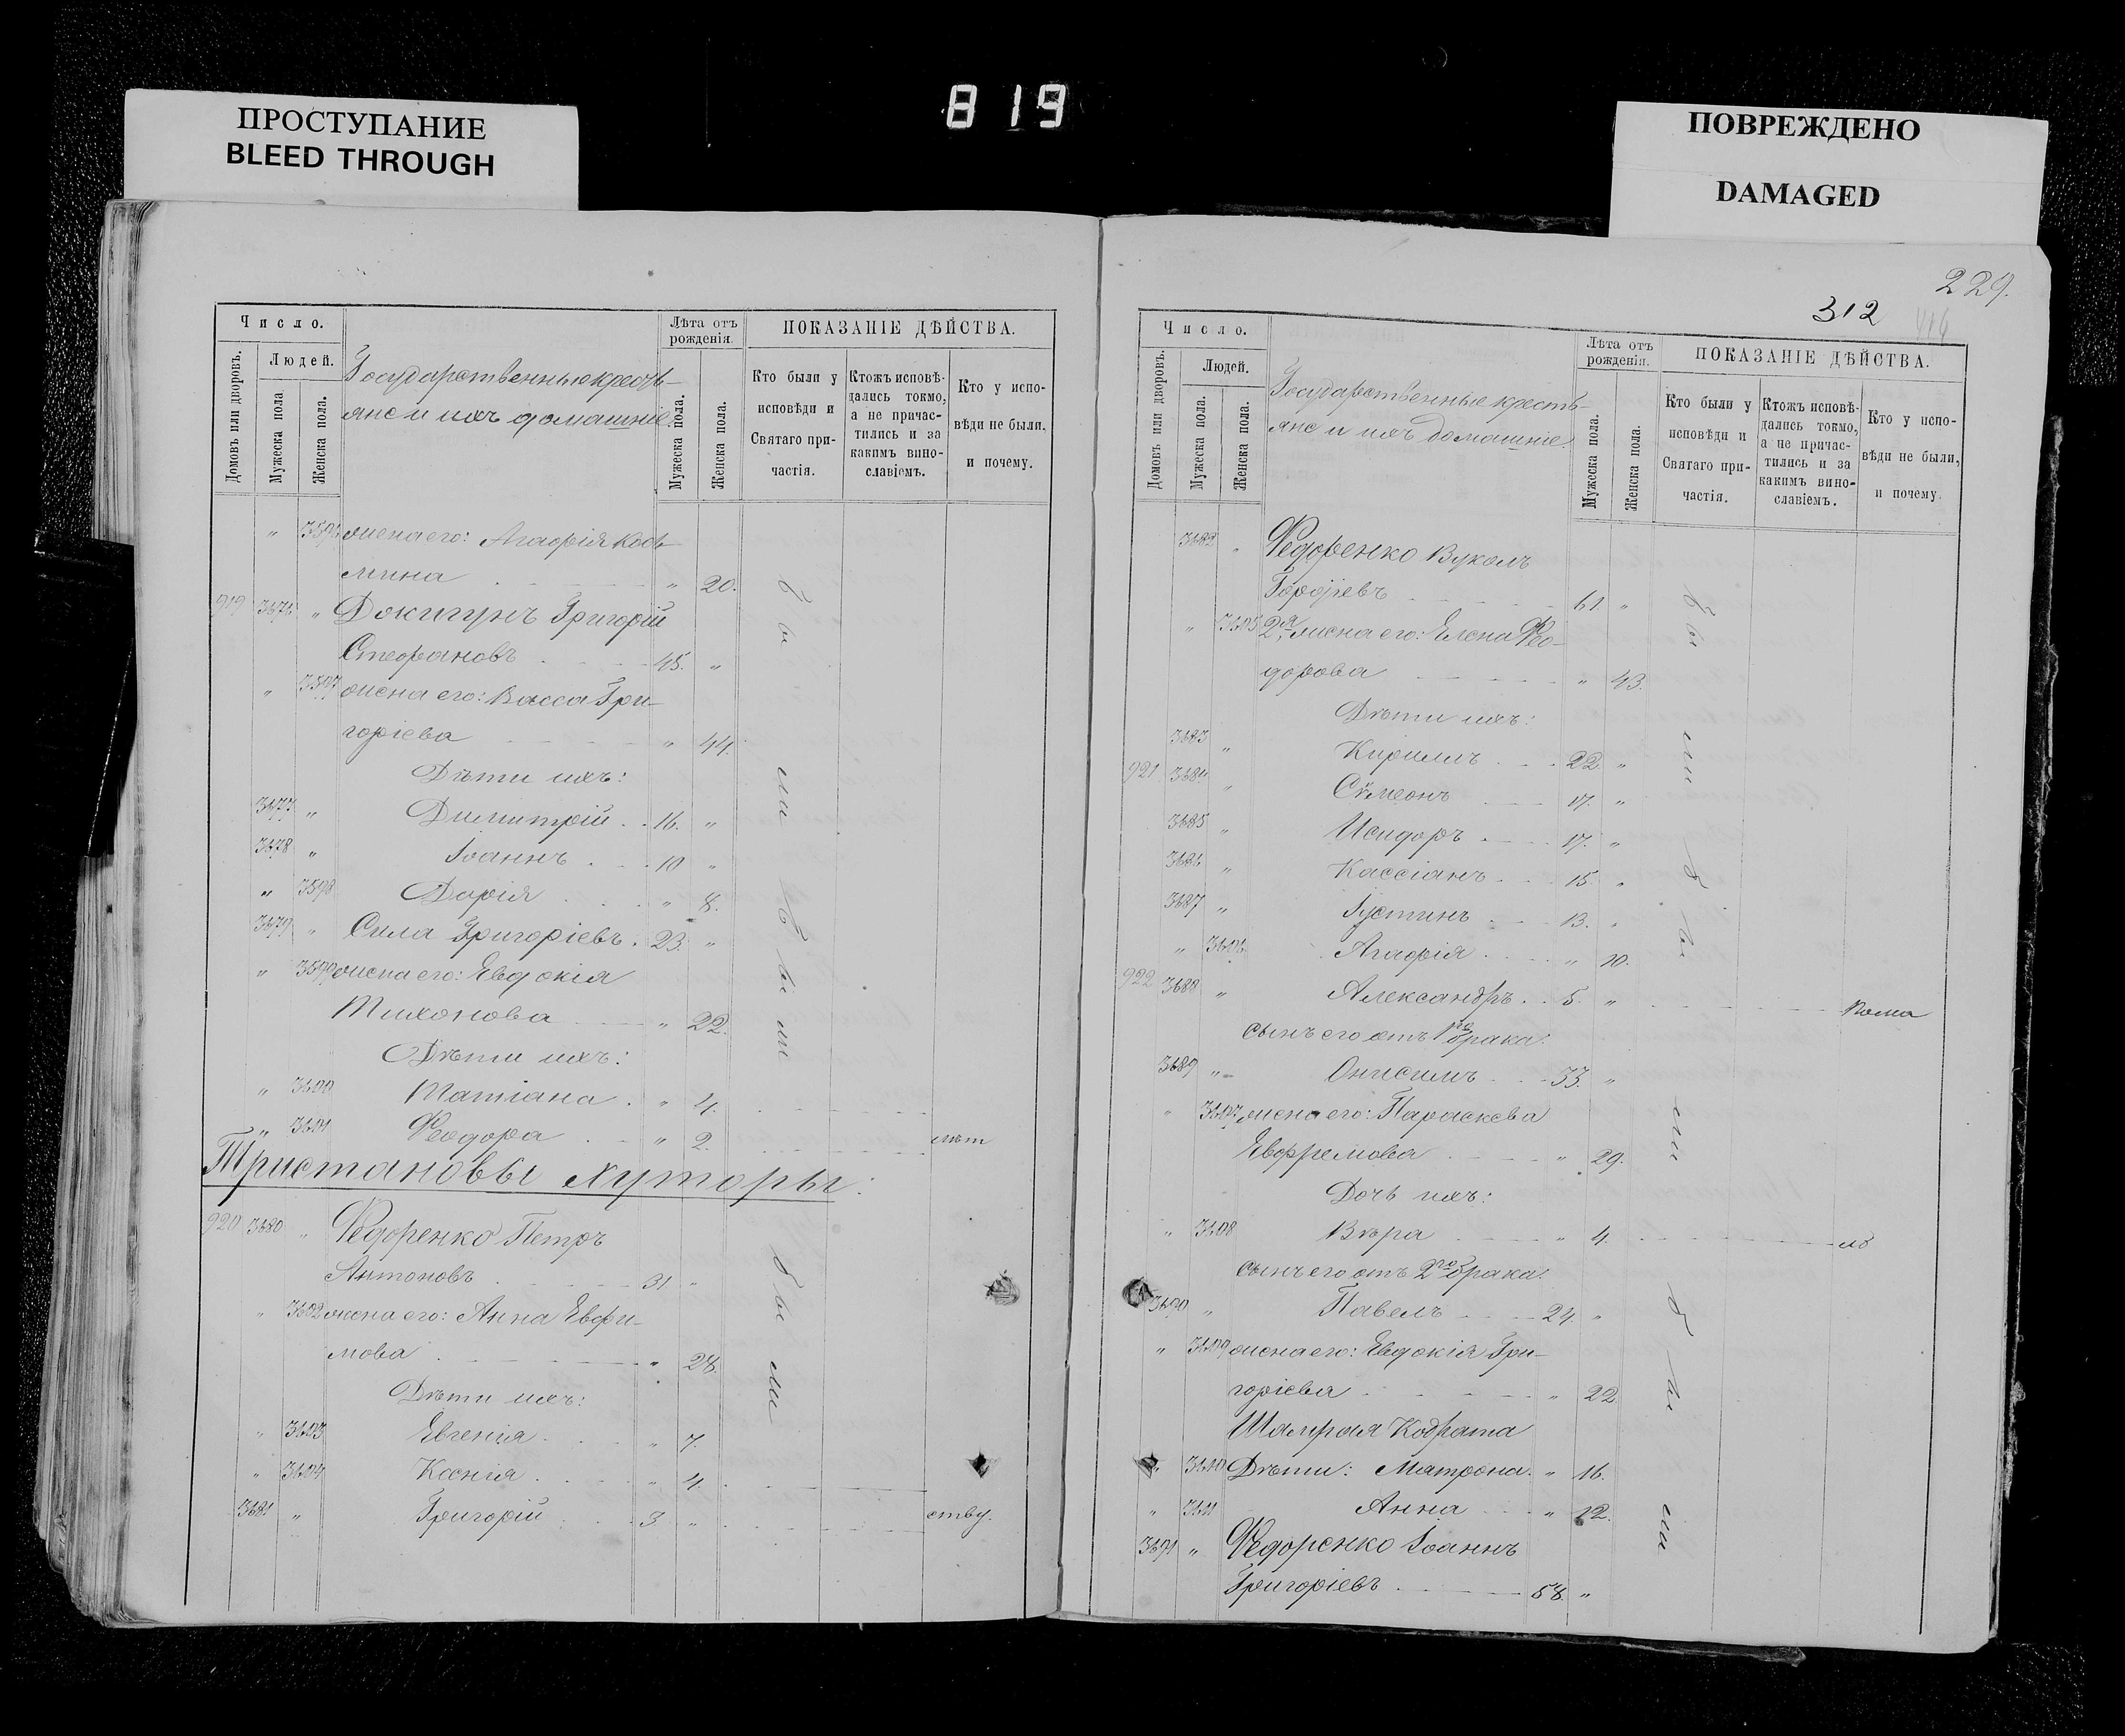 819
ПРОСТУПАНИЕ
BLEED THROUGH
ПОВРЕЖДЕНО
DAMAGED
Число.
Людей.
Домовъ или дворовъ.
Мужеска пола.
Женска пола.
Государственные кресть-
яне и ихъ домашніе.
Лѣта отъ
рожденія.
Мужеска пола.
Женска пола.
ПОКАЗАНІЕ ДѢЙСТВА.
Кто были у
исповѣди и
Святаго при-
частія.
Ктожъ исповѣ-
дались токмо,
а не причас-
тились и за
какимъ вино-
славіемъ.
Кто у испо-
вѣди не были,
и почему.
" 3596 жена его: Агафія Кось-
мина " 20.
919 3676 " Докигунъ Григорій
Стефановъ 45. "
" 3597 жена его: Васса Гри-
горіева " 44.
Дѣти ихъ:
3677 " Димитрій 16. "
3678 " Іоаннъ 10 "
" 3598 Дарія " 8.
3679 " Сила Григоріевъ. 23. "
" 3599 жена его: Евдокія
Тихонова " 22.
Дѣти ихъ:
" 3600 Татіана " 4.
" 3601 Феодора " 2. лѣт
были были
Тристановы хуторы:
920 3680 " Федоренко Петръ
Антоновъ 31 "
" 3602 жена его: Анна Евфи-
мова " 28.
Дѣти ихъ:
" 3603 Евгенія " 7.
" 3604 Ксенія " 4.
3681 " Григорій 3. " ству.
были
229.
312
416
Число.
Людей.
Домовъ или дворовъ.
Мужеска пола.
Женска пола.
Государственные кресть-
яне и ихъ домашніе.
Лѣта отъ
рожденія.
Мужеска пола.
Женска пола.
ПОКАЗАНІЕ ДѢЙСТВА.
Кто были у
исповѣди и
Святаго при-
частія.
Ктожъ исповѣ-
дались токмо,
а не причас-
тились и за
какимъ вино-
славіемъ.
Кто у испо-
вѣди не были,
и почему.
3682 " Федоренко Вуколъ
61. "
" 3605 2я жена его: Елена Фео-
дорова " 43.
Дѣти ихъ:
3683 " Кириллъ 22 "
921 3684 " Сѵмеонъ 17. "
3685 " Исидоръ 17. "
3686 " Кассіанъ 15. "
3687 " Іустинъ 13. "
" 3606 Агафія " 10.
922 3688 " Александръ 5. "
сынъ его отъ 1го брака:
3689 " Онисимъ 33. "
" 3607 жена его: Параскева
Евфремова " 29.
Дочь ихъ:
" 3608 Вѣра " 4.
сынъ его отъ 2го брака:
3690 " Павелъ 24. "
" 3609 жена его: Евдокія Гри-
горіева " 22
Кодрата
" 3610 Дѣти: Матрона. " 16.
" 3611 Анна " 12.
3691 " Федоренко Іоаннъ
Григоріевъ 58. "
были были